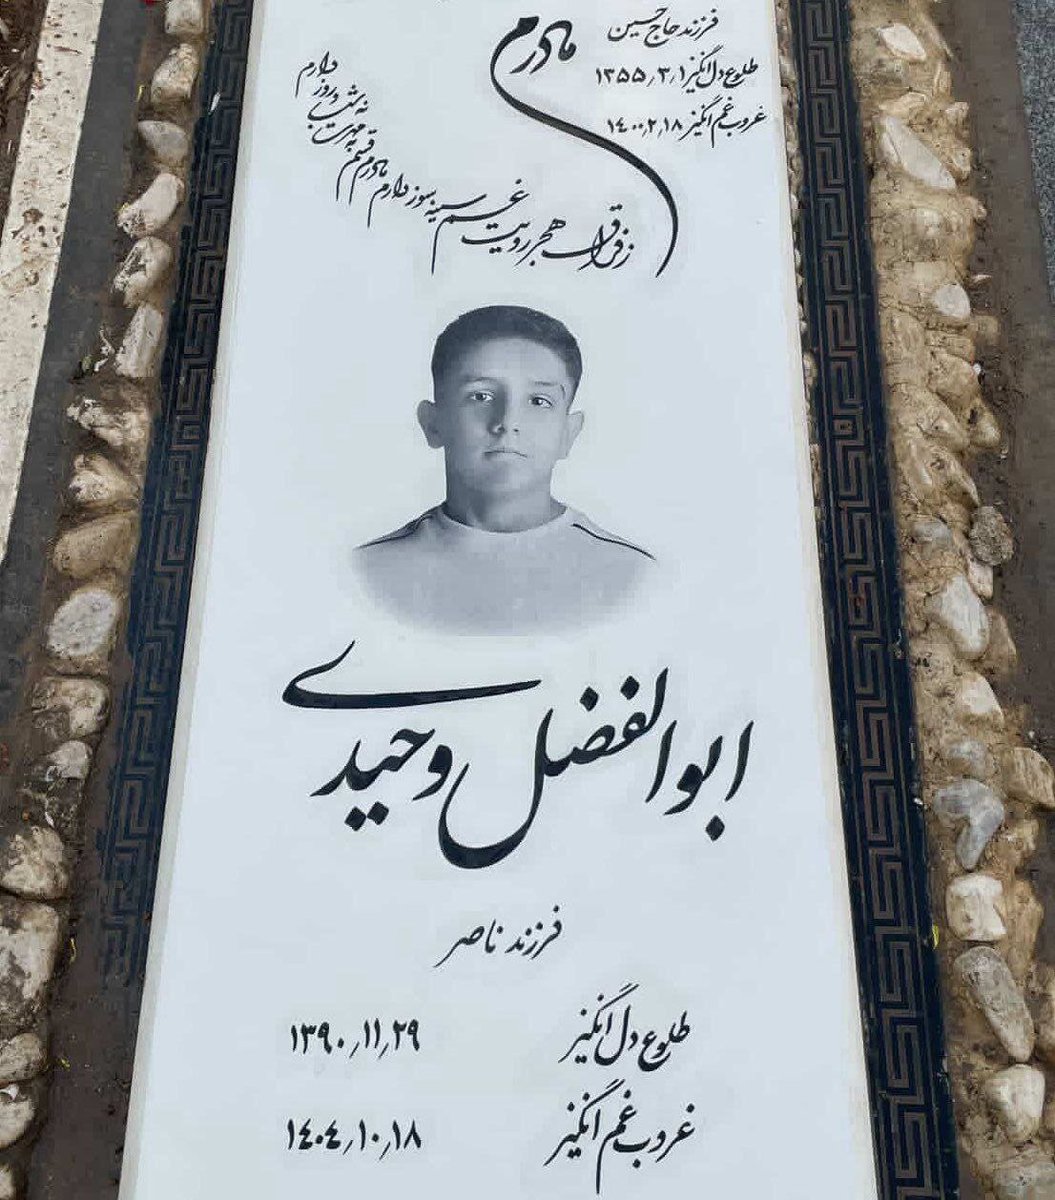 فرزند حاج حسین
طلوع دل انگیز ۱۳۵۵٫۳٫۱
غروب غم انگیز ۱۴۰۰٫۲٫۱۸
مادرم
ز فراق هجر رویت غم سینه سوز دارم
مادرم قسم به مهرت نه شب و نه روز دارم
ابوالفضل وحیدی
فرزند ناصر
طلوع دل انگیز ۱۳۹۰٫۱۱٫۲۹
غروب غم انگیز ۱۴۰۴٫۱۰٫۱۸